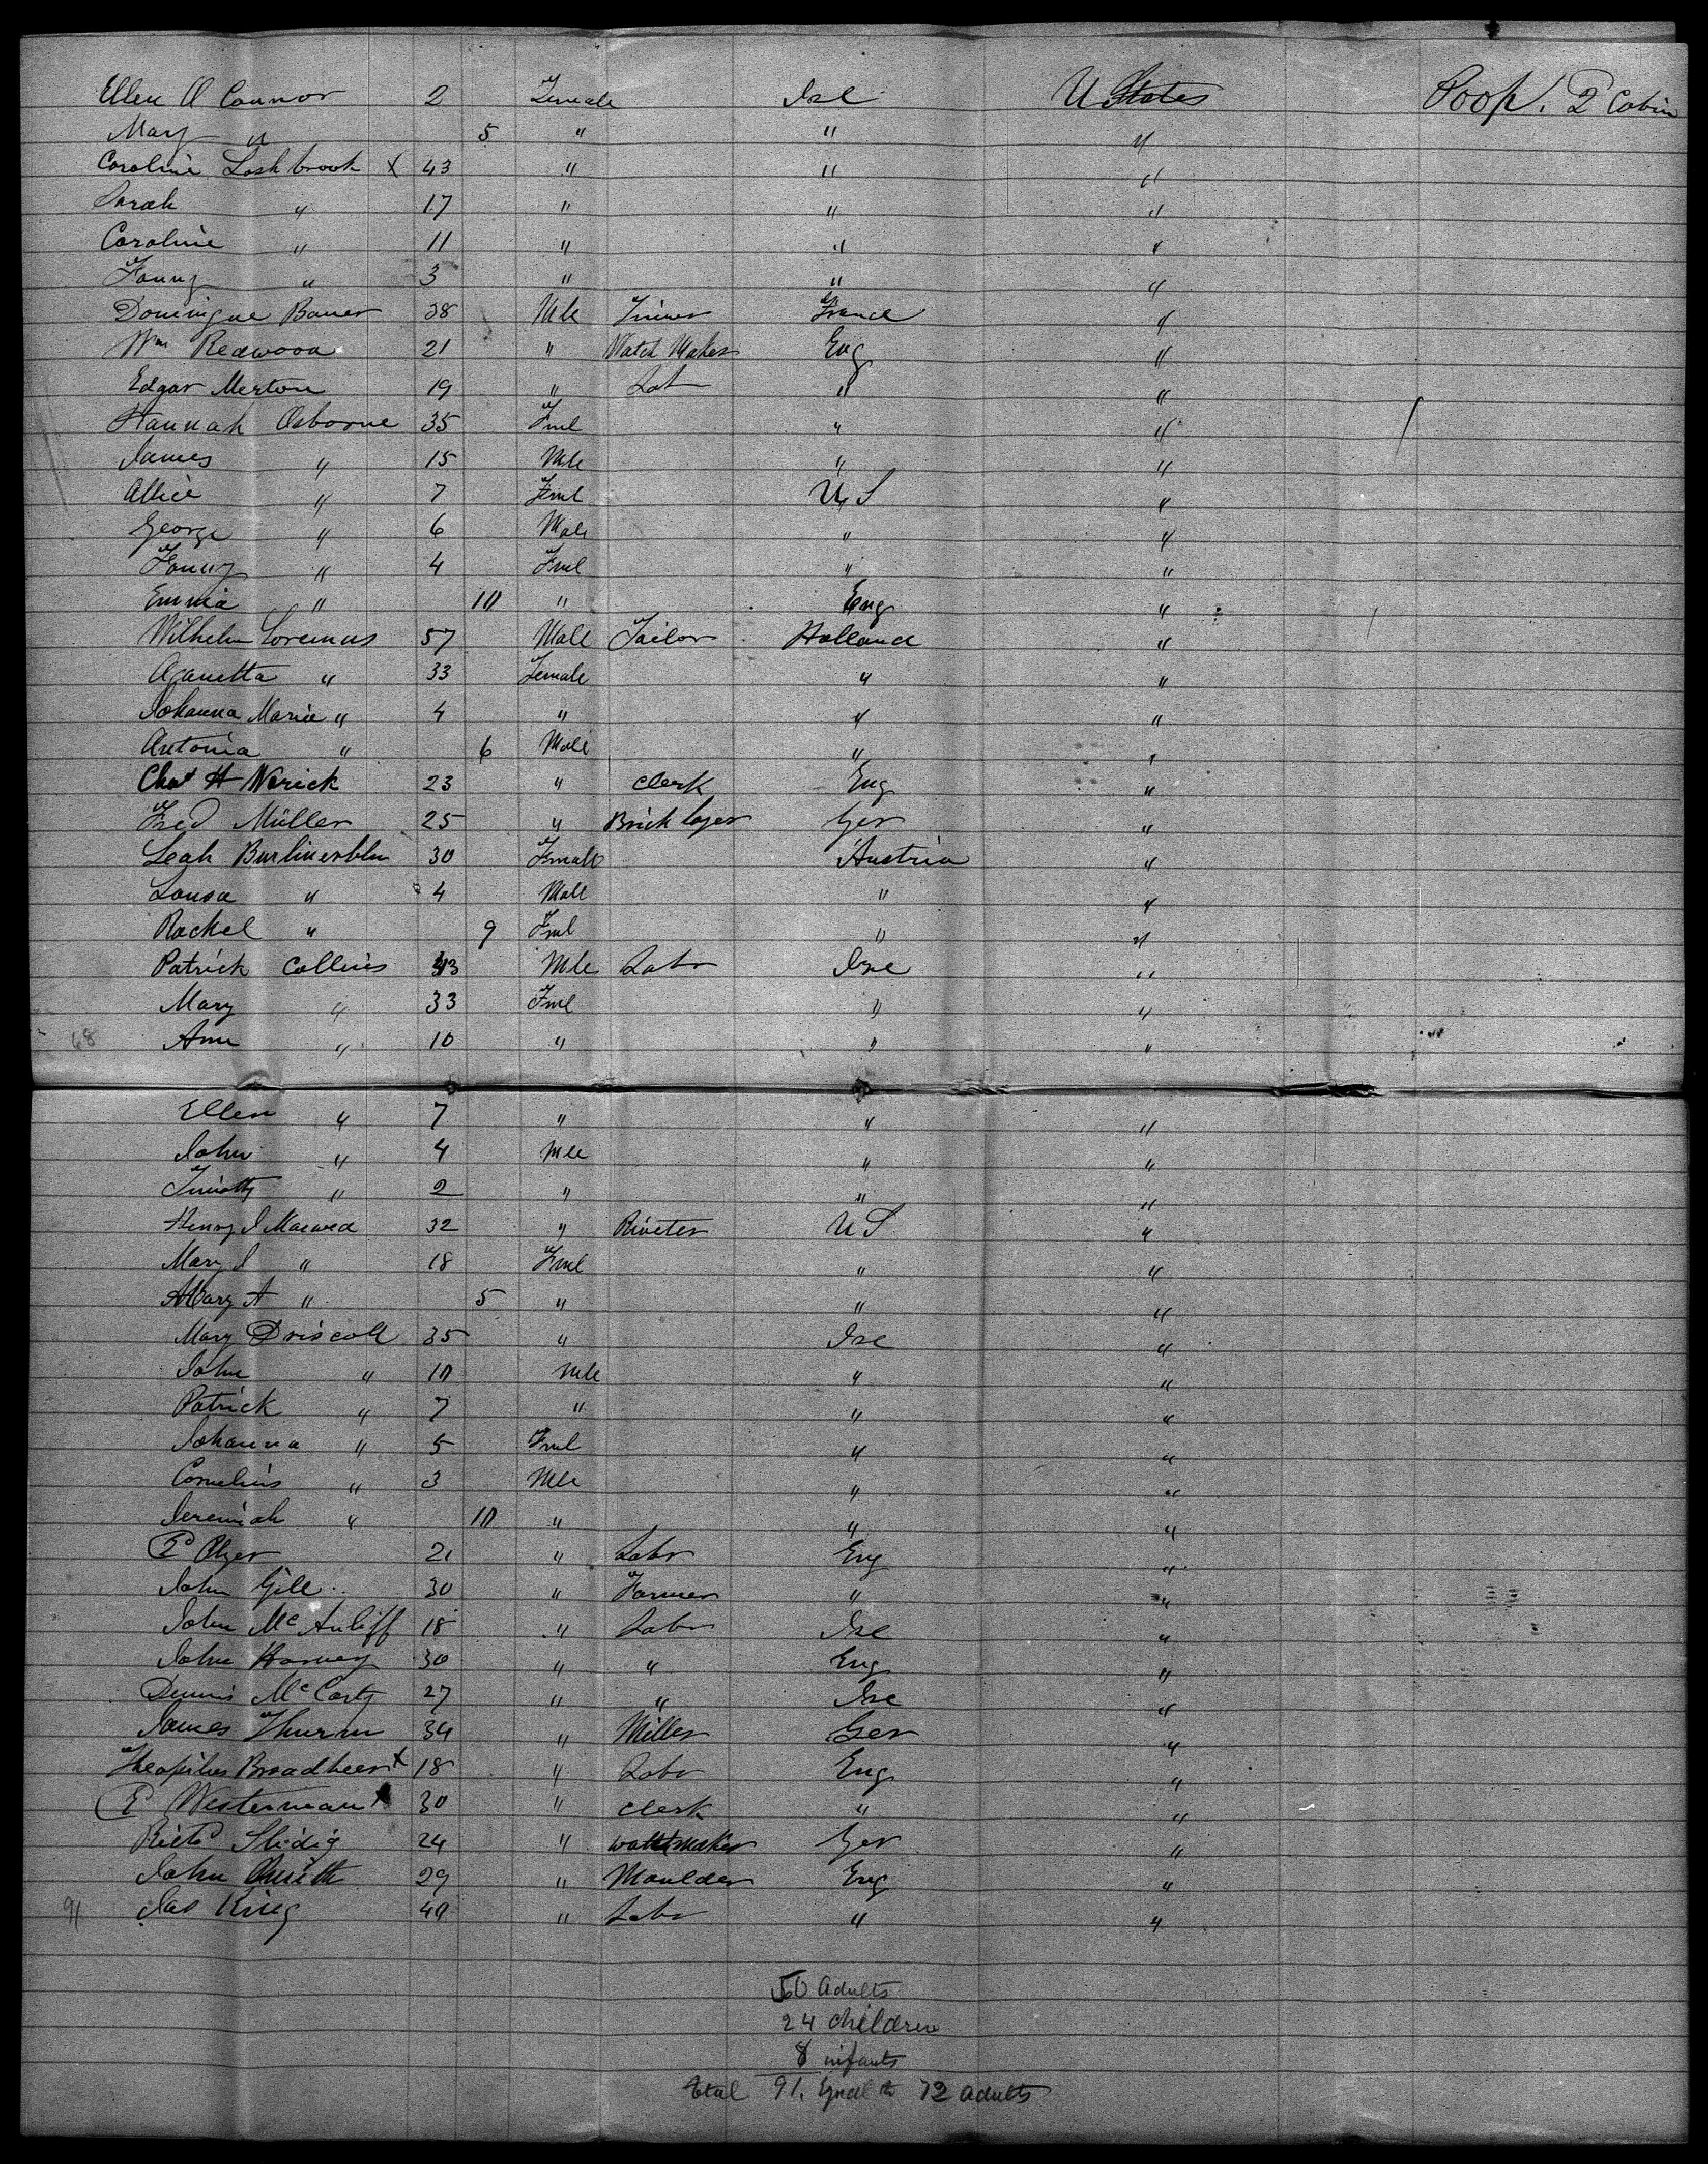 Ellen O Connor 2 Female Ire U States Poop. 2 Cabin
Mary " 5 " " "
Caroline Lashbrook x 43 " " "
Sarah " 17 " " "
Caroline " 11 " " "
Fanny " 3 " " "
Dominique Bauer 38 Mle France "
Wm Redwood 21 " Watch Maker Eng "
Edgar Merton 19 " Labr " "
Hannah Osborne 35 Fml " "
James " 15 Mle " "
Allice " 7 Fml U S "
George " 6 Male " "
Fanny " 4 Fml " "
Emma " 10 " Eng "
Wilhelm Loremus 57 Male Tailor Holland "
Aganetta " 33 Female " "
Johanna Maria " 4 " " "
Antonia " 6 Male " "
Chas H Warick 23 " Clerk Eng "
Fred Müller 25 " Brick layer Ger "
Leah Burlinerblm 30 Female Austria "
" 4 Male " "
Rachel " 9 Fml " "
Patrick Collins 43 Mle Labr Ire "
Mary " 33 Fml " "
68 Ann " 10 " " "
Ellen " 7 " " "
John " 4 Mle " "
Timothy " 2 " " "
Henry J 32 " Riveter U S "
Mary J " 18 Fml " "
Mary A " 5 " " "
Mary Driscoll 35 " Ire "
John " 10 Mle " "
Patrick " 7 " " "
Johanna " 5 Fml " "
Cornelius " 3 Mle " "
Jeremiah " 10 " " "
21 " Labr Eng "
John Gill 30 " Farmer " "
John McAuliff 18 " Labr Ire "
John Harvey 30 " " Eng "
Dennis McCarty 27 " " Ire "
James Thurm 34 " Miller Ger "
Theopilus Broadbeer x 18 " Labr Eng "
E Westerman x 30 " Clerk " "
24 " watchmaker Ger "
John Smith 29 " Moulder Eng "
91 Jas King 40 " Labr " "
24 children
8 infants
total 91. Equal to 72 adults